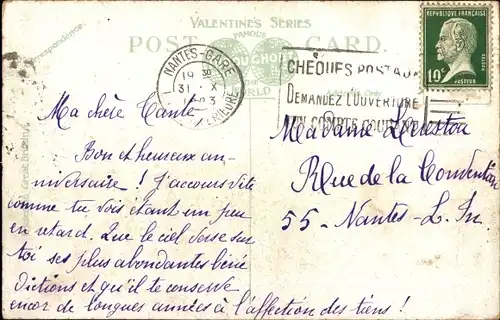 VALENTINE'S SERIES
FAMOUS
POST CARD.
WORLD
Correspondence.
Address Only.
NANTES-GARE
19 30
31 X
LOIRE INFERIEURE
CHEQUES POSTAUX
DEMANDEZ L'OUVERTURE
D'UN COMPTE COURANT
REPUBLIQUE FRANÇAISE
10c
PASTEUR
POSTES
Ma chère Tante
Bon et heureux an-
niversaire ! J'accours vite
comme tu vois étant un peu
en retard. Que le ciel verse sur
toi ses plus abondantes béné
dictions et qu'il te conserve
encor de longues années à l'affection des tiens !
Madame
Rue de la Convention
55 - Nantes - L. In.